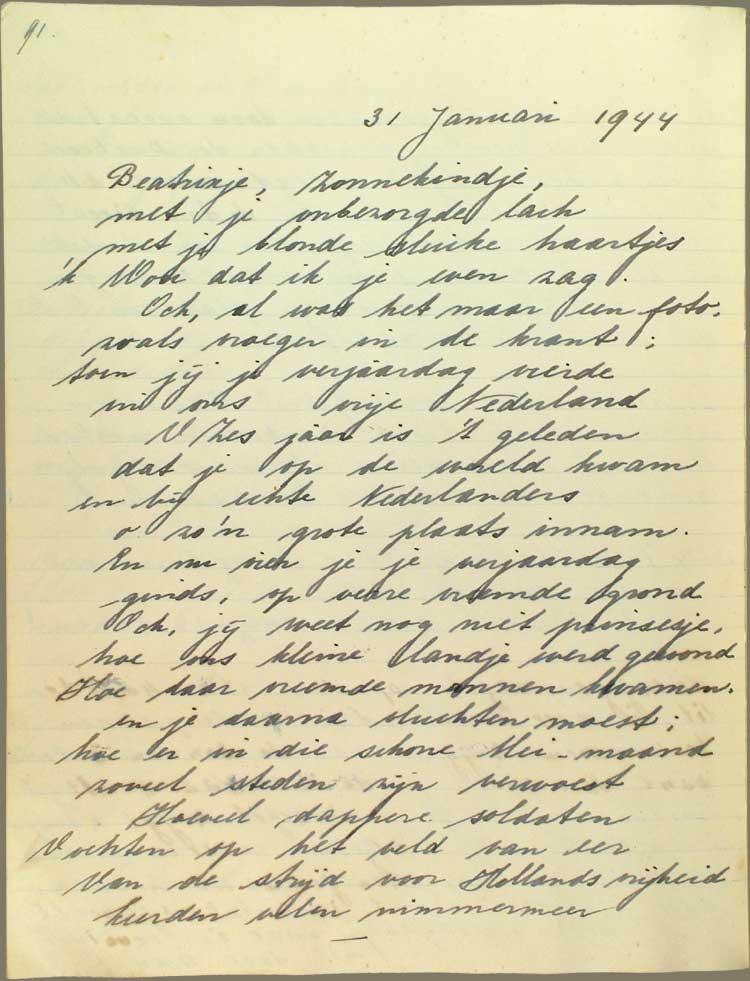 91.
31 Januari 1944
Beatrixje, zonnekindje,
met je onbezorgde lach
met je blonde sluike haartjes
'k Wou dat ik je even zag.
Och, al was het maar een foto,
zoals vroeger in de krant;
toen jij je verjaardag vierde
in ons vrije Nederland
Zes jaar is 't geleden
dat je op de wereld kwam
en bij echte Nederlanders
zo'n grote plaats innam.
En nu vier je je verjaardag
ginds, op verre vreemde grond
Och, jij weet nog niet prinsesje,
hoe ons kleine landje werd gewond
Hoe daar vreemde mannen kwamen,
en je daarna vluchten moest;
hoe er in die schone Mei-maand
zoveel steden zijn verwoest
Hoeveel dappere soldaten
Vochten op het veld van eer
Van de strijd voor Hollands vrijheid
keerden velen nimmermeer